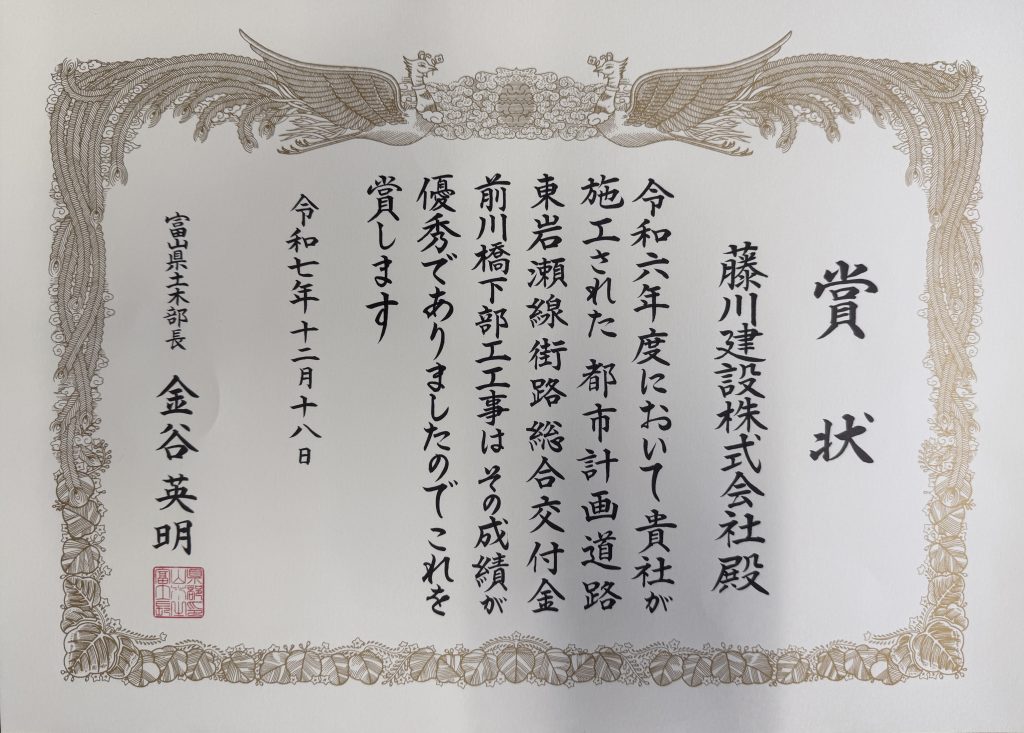 賞状
藤川建設株式会社殿
令和六年度において貴社が
施工された 都市計画道路
東岩瀬線街路総合交付金
前川橋下部工工事は その成績が
優秀でありましたので これを
賞します
令和七年十二月十八日
富山県土木部長 金谷英明